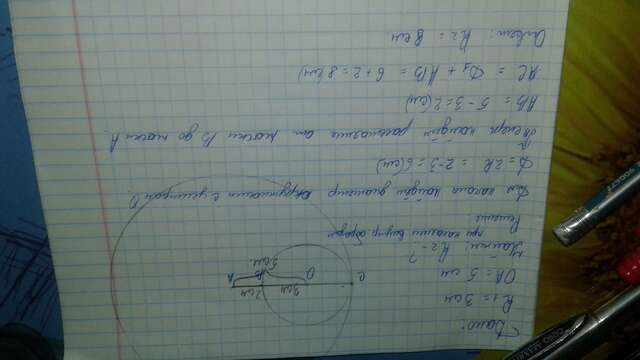 Дано:
R1 = 3 см
OA = 5 см
Найти: R2 - ?
при касании внутр. образом
Решение
Для начала найдём диаметр окружности с центром O.
D = 2R = 2·3 = 6 (см)
Теперь найдём расстояние от точки B до точки A.
AB = 5 - 3 = 2 (см)
AC = D1 + AB = 6 + 2 = 8 (см)
Ответ: R2 = 8 см
A B O C
2см 3см
5 см